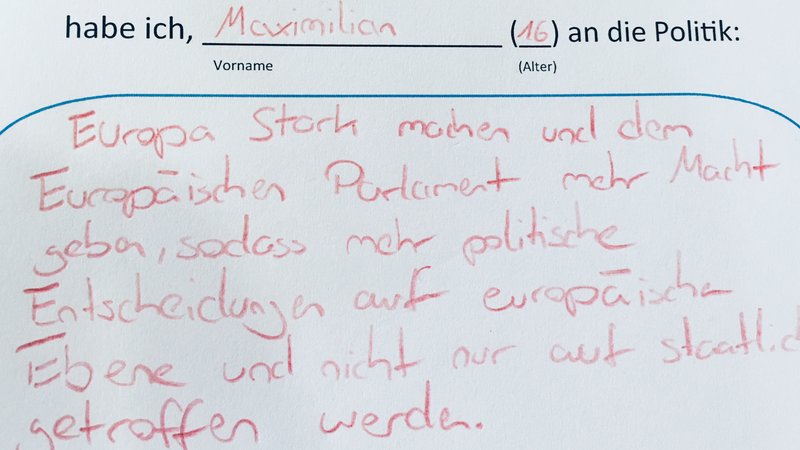 habe ich, Maximilian (16) an die Politik:
Vorname (Alter)
Europa Stark machen und dem
Europäischen Parlament mehr Macht
geben, sodass mehr politische
Entscheidungen auf europäische
Ebene und nicht nur auf staatlich
getroffen werden.